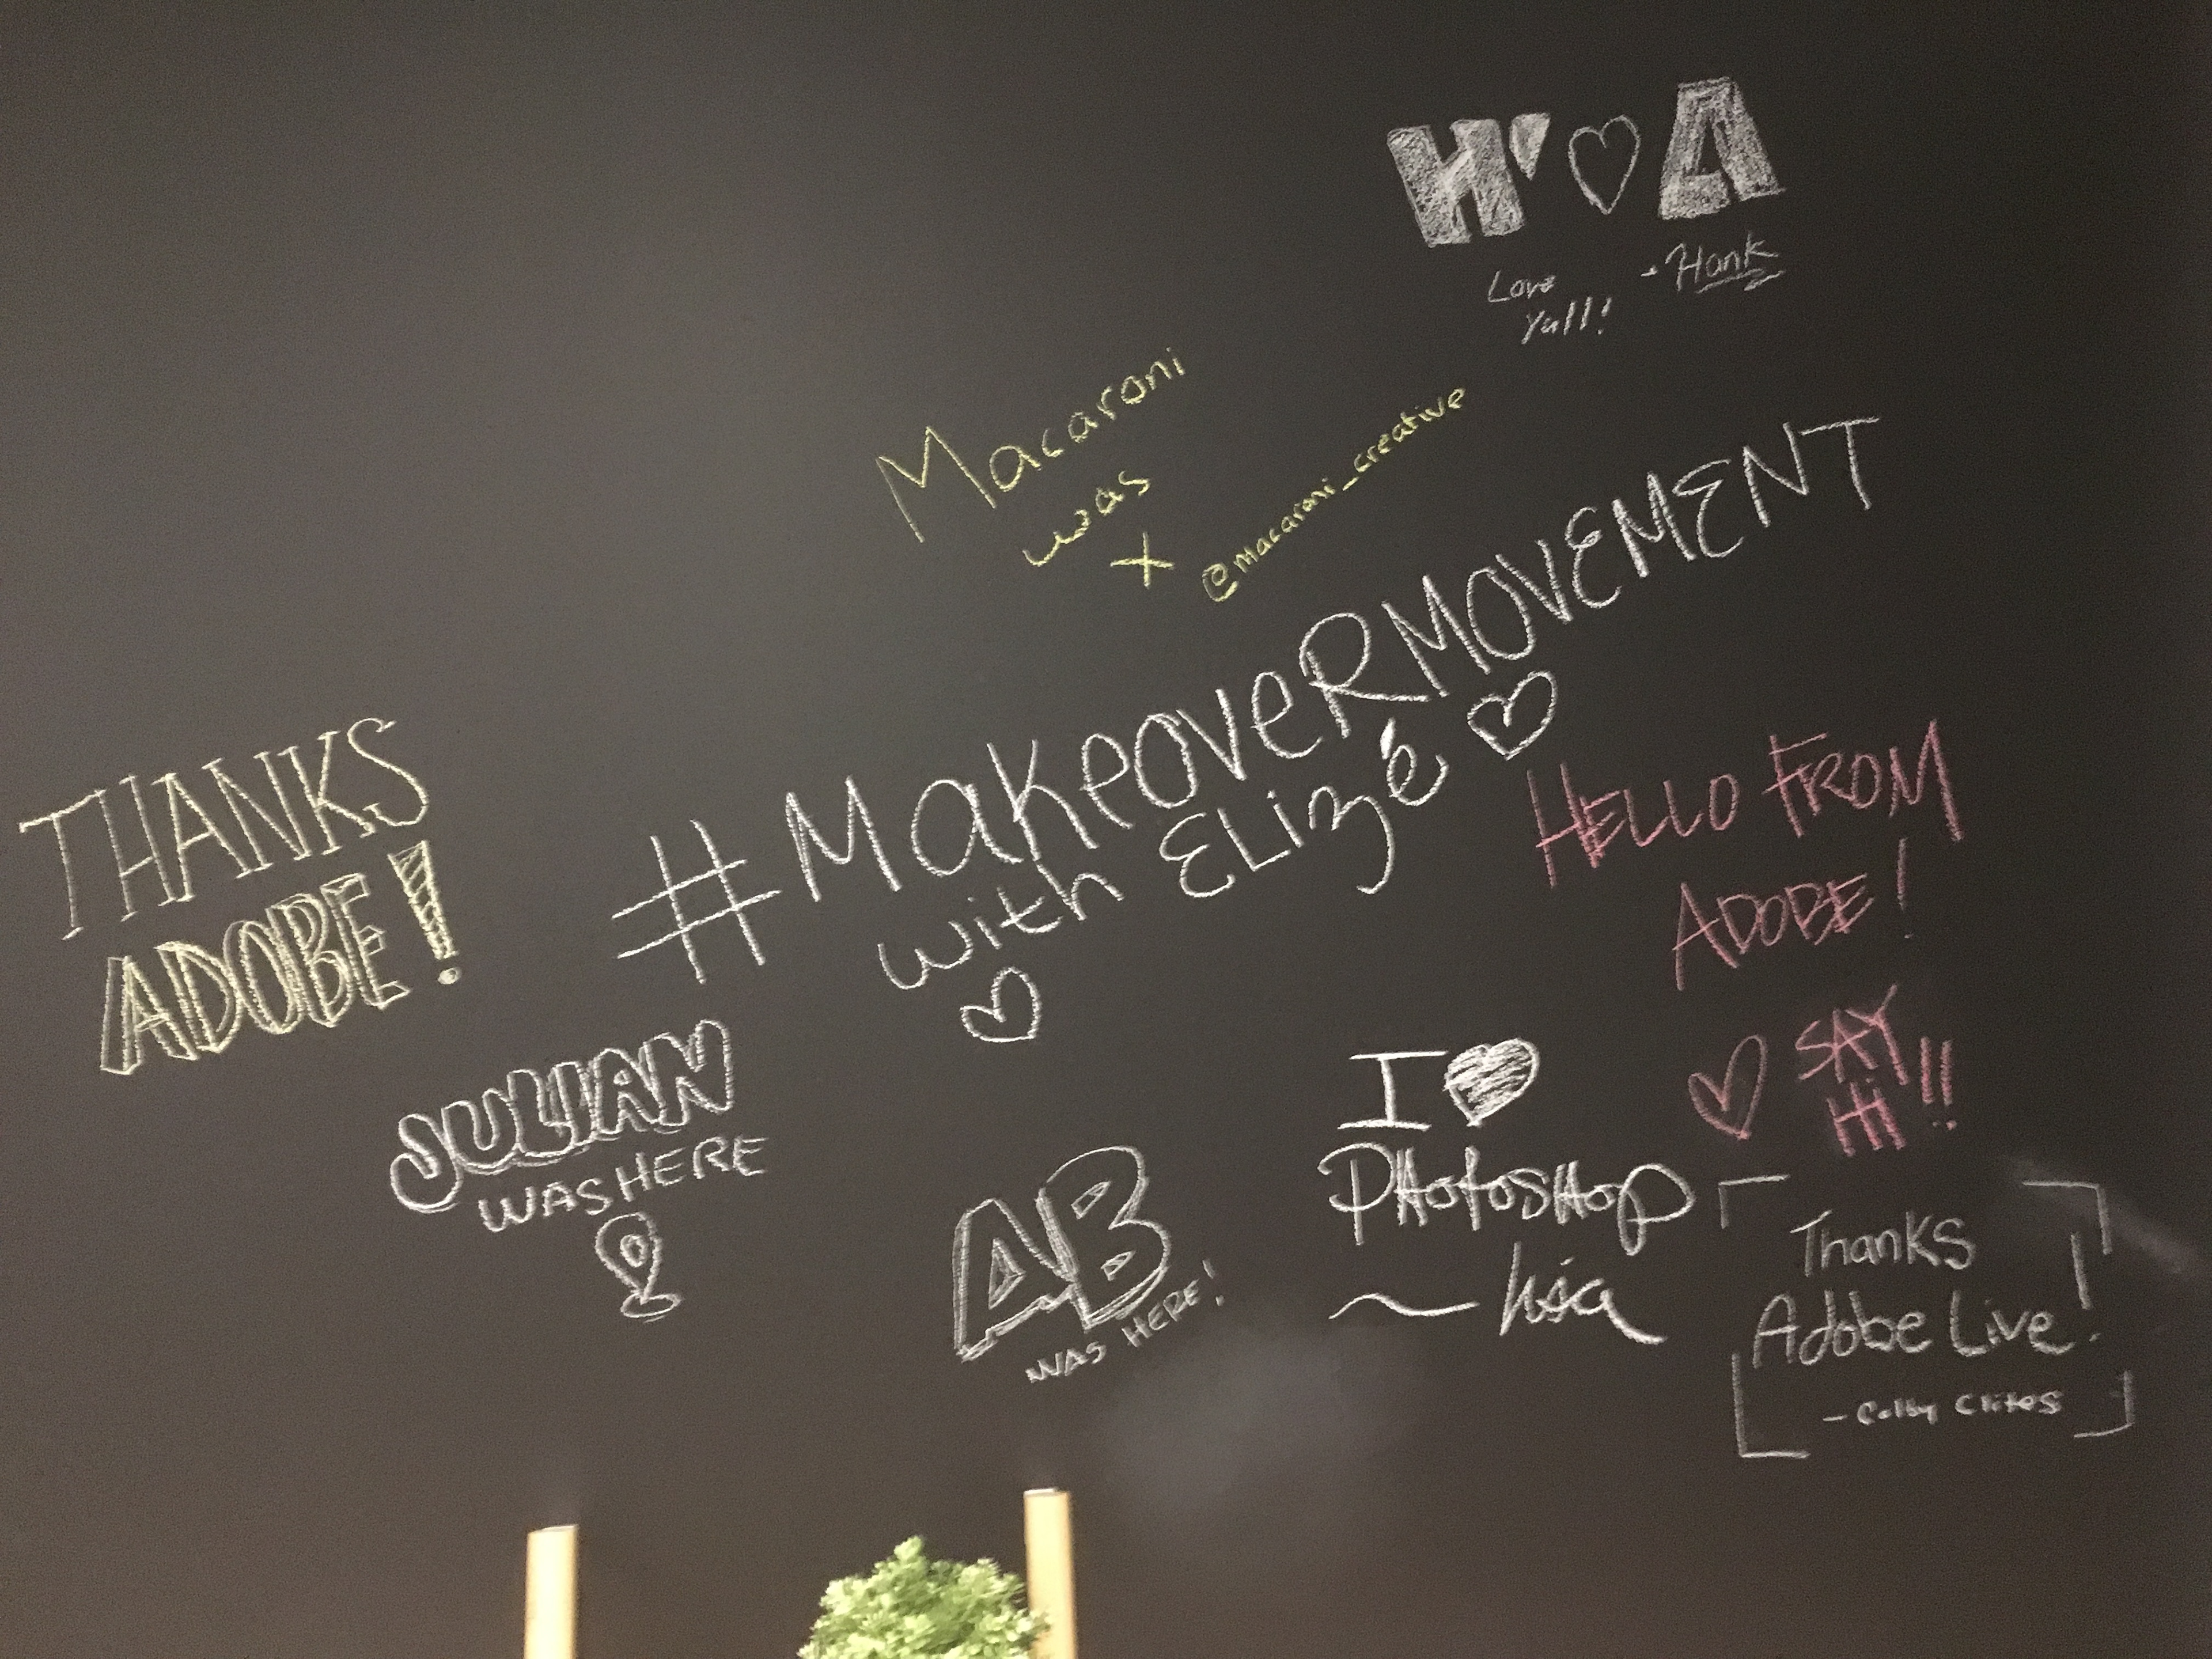 H' ♡ A
Love
Yall!
- Hank
Macaroni
was
X
@macaroni_creative
#MakeoveRMOVEMENT
with ELizé ♡
♡
THANKS
ADOBE!
HELLO FROM
ADOBE!
♡ SAY
Hi!!
JULIAN
WAS HERE
I ♥
PHotosHop
AB
WAS HERE!
Thanks
Adobe Live!
- Colby Clites